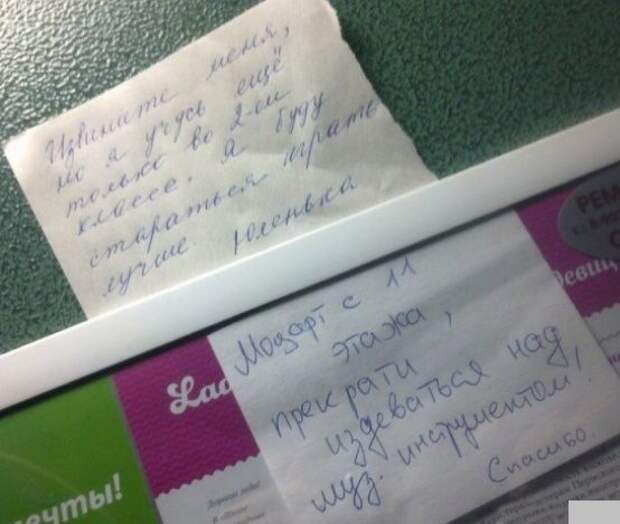 Извините меня,
но я учусь ещё
только во 2-ом
классе. Я буду
стараться играть
лучше. Юленька
Моцарт с 11
этажа,
прекрати
издеваться над
муз. инструментом,
Спасибо.
Lad
РЕМ
девиц
мечты!